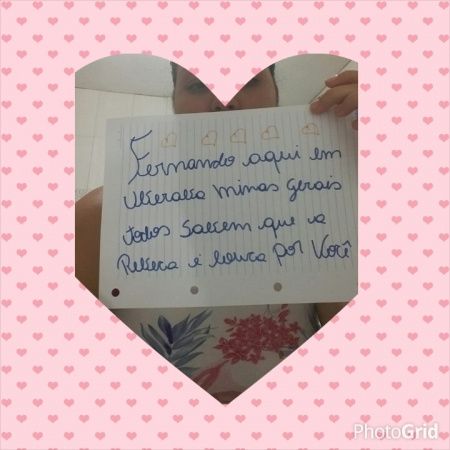 Fernando aqui em
Uberaba Minas Gerais
todos sabem que a
Rebeca é louca por Você
PhotoGrid